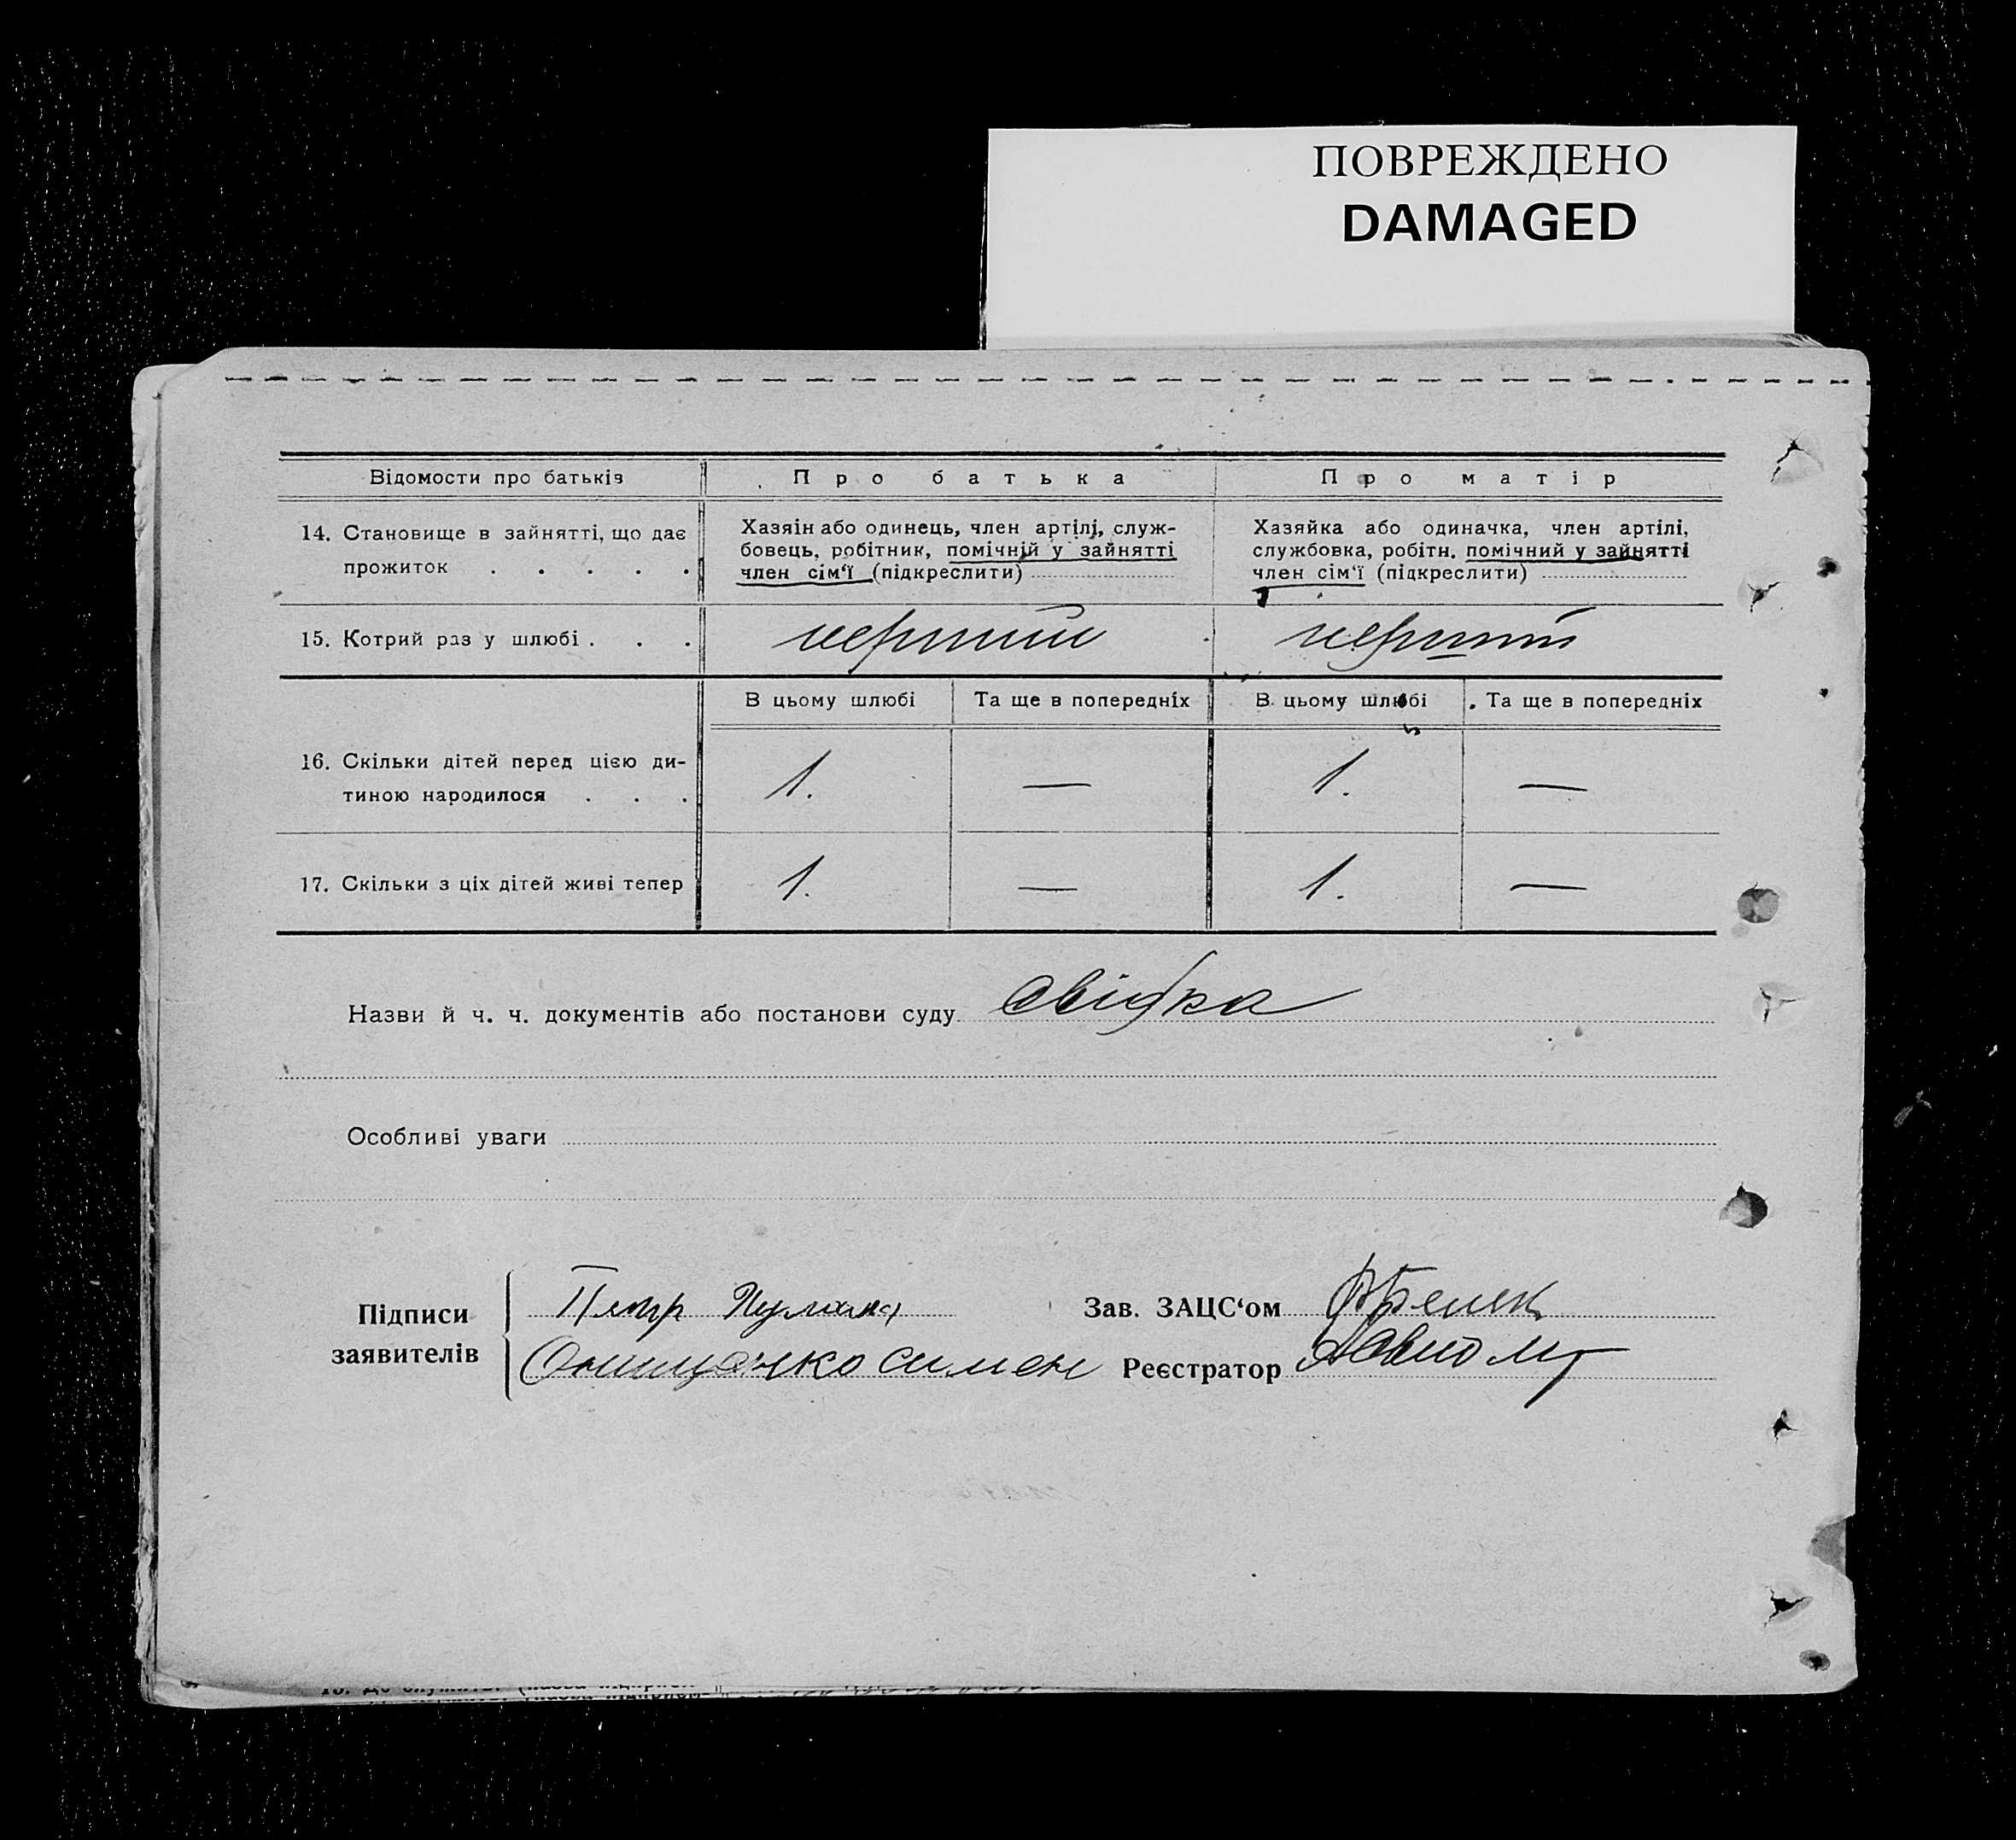 ПОВРЕЖДЕНО
DAMAGED
Відомости про батьків
Про батька
Про матір
14. Становище в зайнятті, що дає
прожиток . . . . .
Хазяін або одинець, член артілі, служ-
бовець, робітник, помічній у зайнятті
член сім‘ї (підкреслити)
Хазяйка або одиначка, член артілі,
службовка, робітн. помічний у зайнятті
член сім‘ї (підкреслити)
15. Котрий раз у шлюбі . . .
перший
перший
В цьому шлюбі
Та ще в попередніх
В цьому шлюбі
Та ще в попередніх
16. Скільки дітей перед цією ди-
тиною народилося . . .
1.
—
1.
—
17. Скільки з ціх дітей живі тепер
1.
—
1.
—
Назви й ч. ч. документів або постанови суду свідка
Особливі уваги
Підписи
заявителів
Петр
Онищенко Симен
Зав. ЗАЦС‘ом
Реєстратор